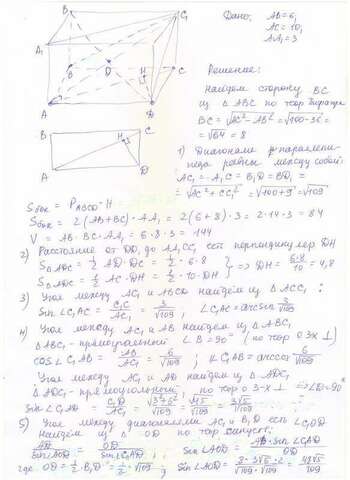 Дано: AB=6,
AC=10,
AA₁=3
Решение:
Найдем сторону BC
из △ABC по теор. Пифагора
BC = √(AC²-AB²) = √(100-36) =
= √64 = 8
1) Диагонали параллелепи-
педа равны между собой:
AC₁ = A₁C = B₁D = BD₁ =
= √(AC²+CC₁²) = √(100+9) = √109
B₁
C₁
A₁
B
O
H
C
A
D
B
C
H
A
D
Sбок = P_ABCD · H
Sбок = 2(AB+BC)·AA₁ = 2(6+8)·3 = 2·14·3 = 84
V = AB·BC·AA₁ = 6·8·3 = 144
2) Расстояние от DD₁ до AA₁CC₁ есть перпендикуляр DH
S△ADC = 1/2 AD·DC = 1/2·6·8
S△ADC = 1/2 AC·DH = 1/2·10·DH } => DH = 6·8/10 = 4,8
3) Угол между AC₁ и ABCD найдем из △ACC₁:
sin∠C₁AC = C₁C/AC₁ = 3/√109; ∠C₁AC = arcsin 3/√109
4) Угол между AC₁ и AB найдем из △ABC₁
△ABC₁ - прямоугольный ∠B=90° (по теор о 3х ⊥)
cos∠C₁AB = AB/AC₁ = 6/√109; ∠C₁AB = arccos 6/√109
Угол между AC₁ и AD найдем из △ADC₁
△ADC₁ - прямоугольный по теор о 3-х ⊥ => ∠D=90°
sin∠C₁AD = C₁D/AC₁ = √(3²+6²)/√109 = √45/√109 = 3√5/√109
5) Угол между диагоналями AC₁ и B₁D есть ∠C₁OD
Найдем из △AOD по теор синусов:
AD/sin∠AOD = OD/sin∠C₁AD; sin∠AOD = AD·sin∠C₁AD/OD
где OD = 1/2 B₁D = 1/2·√109; sin∠AOD = 8·3√5·2/√109·√109 = 48√5/109